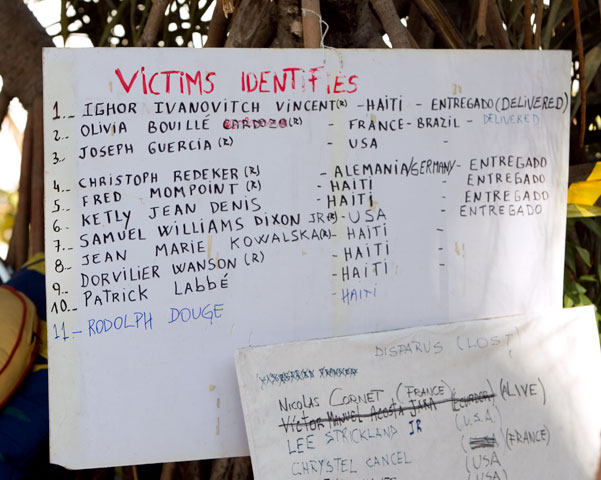 VICTIMS IDENTIFIES
1.- IGHOR IVANOVITCH VINCENT(R) - HAITI - ENTREGADO (DELIVERED)
2.- OLIVIA BOUILLÉ CARDOZO(R) - FRANCE-BRAZIL - DELIVERED
3.- JOSEPH GUERCIA (R) - USA -
4.- CHRISTOPH REDEKER(R) - ALEMANIA/GERMANY- ENTREGADO
5.- FRED MOMPOINT(R) - HAITI - ENTREGADO
6.- KETLY JEAN DENIS - HAITI - ENTREGADO
7.- SAMUEL WILLIAMS DIXON JR(R) - USA - ENTREGADO
8.- JEAN MARIE KOWALSKA(R) - HAITI -
9.- DORVILIER WANSON (R) - HAITI -
10.- PATRICK LABBÉ - HAITI -
11- RODOLPH DOUGE - HAITI
DISPARUS (LOST)
NICOLAS CORNET (FRANCE) (ALIVE)
VÍCTOR MANUEL ACOSTA JARA
LEE STRICKLAND JR (U.S.A)
CHRYSTEL CANCEL (FRANCE)
(USA
(USA